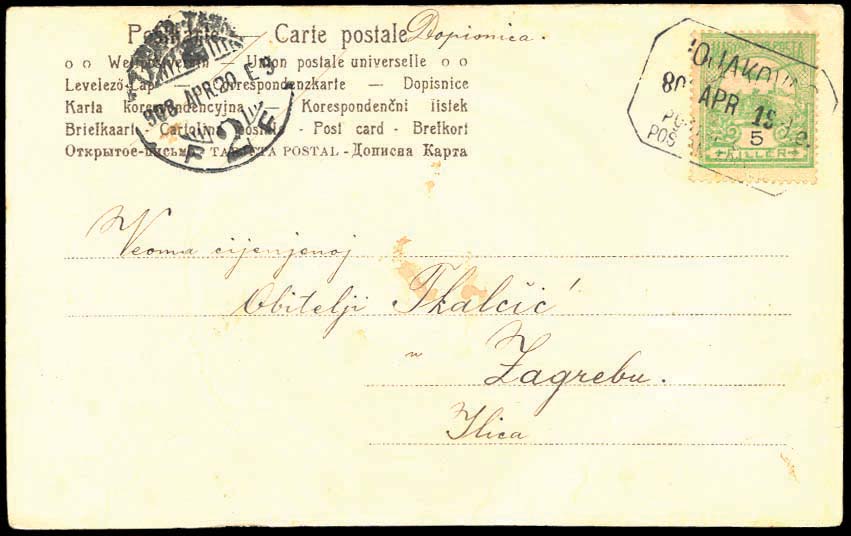 Postkarte — Carte postale Dopisnica.
o o Weltpostverein — Union postale universelle o o
Levelező-Lap — Korrespondenzkarte — Dopisnice
Karta korespondencyjna — Korespondenční lístek
Briefkaart - Cartolina postale - Post card - Brefkort
Открытое-письмо - TARJETA POSTAL - Дописна Карта
908 APR 20 E 9
2
APR 19
5
FILLÉR
Veoma cijenjenoj
Obitelji Tkalčić
u
Zagrebu.
Ilica